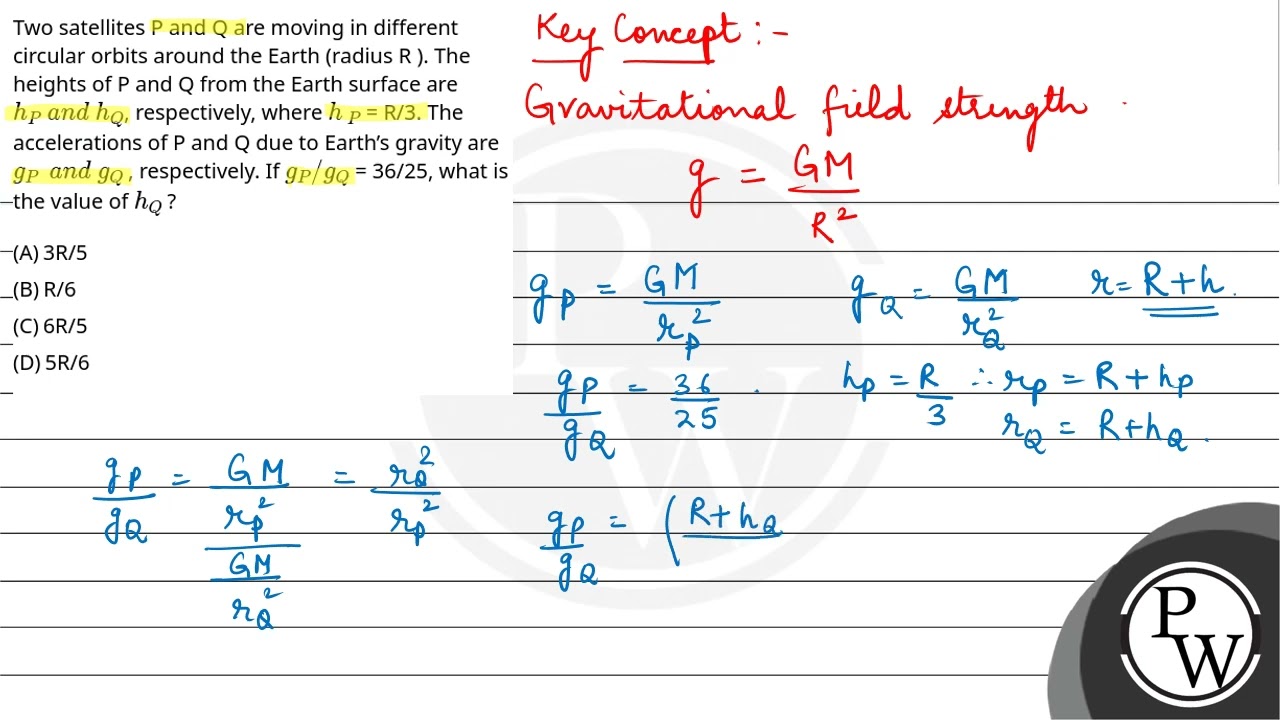 Two satellites P and Q are moving in different
circular orbits around the Earth (radius R ). The
heights of P and Q from the Earth surface are
h_P and h_Q, respectively, where h_P = R/3. The
accelerations of P and Q due to Earth’s gravity are
g_P and g_Q , respectively. If g_P/g_Q = 36/25, what is
the value of h_Q ?
(A) 3R/5
(B) R/6
(C) 6R/5
(D) 5R/6
Key Concept :-
Gravitational field strength .
g = GM/R²
g_P = GM/r_P² g_Q = GM/r_Q² r = R+h.
g_P/g_Q = 36/25 . h_P = R/3 ∴ r_P = R + h_P
r_Q = R+h_Q.
g_P/g_Q = (GM/r_P²)/(GM/r_Q²) = r_Q²/r_P²
g_P/g_Q = (R+h_Q
PW
PW